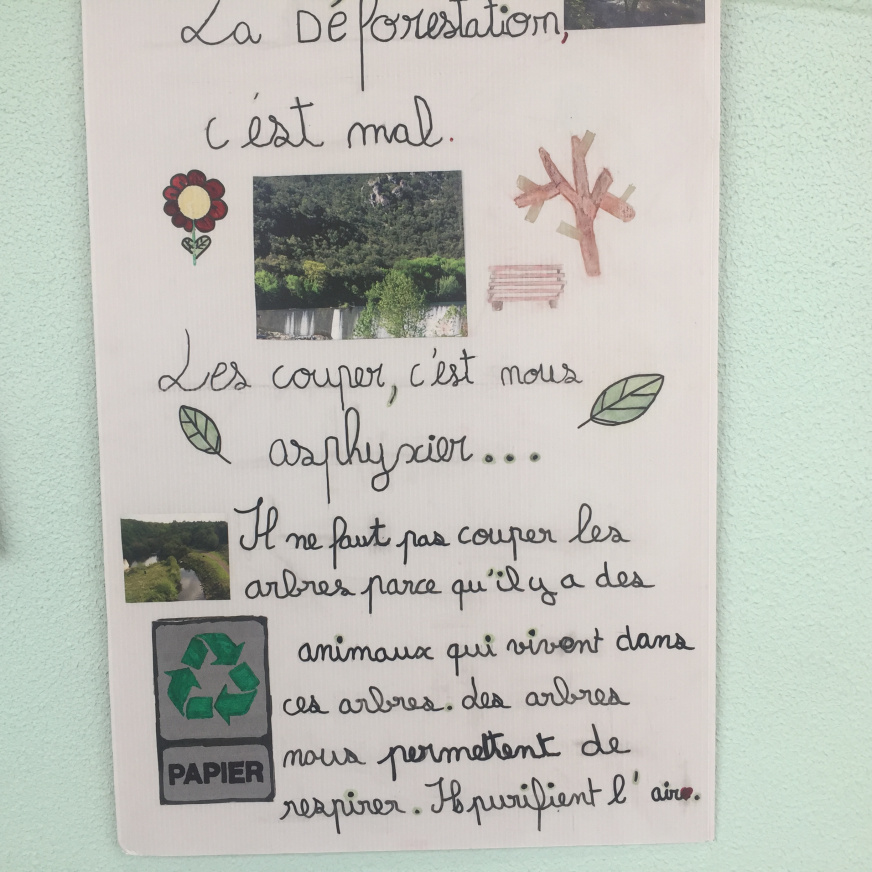 La Déforestation,
c'est mal.
Les couper, c'est nous
asphyxier...
Il ne faut pas couper les
arbres parce qu'il y a des
animaux qui vivent dans
ces arbres. des arbres
nous permettent de
respirer. Ils purifient l'air.
PAPIER